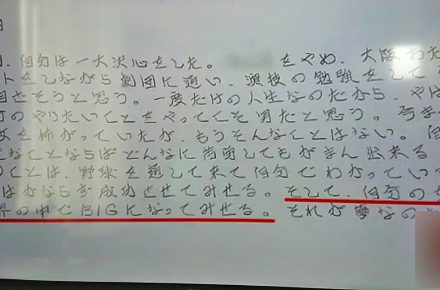 日
、自分は一大決心をした。
をやめ、大阪
トをしながら劇団に通い、演技の勉強をして
目ざそうと思う。一度だけの人生なのだから、やは
のやりたいことをやってこそ男だと思う。今ま
を怖がっていたが、もうそんなことはない。
なことならばどんなに苦労してもがまん出来る
のことは、野球を通して来て自分でわかってい
はかならず成功させてみせる。そして、自分の
界の中でBIGになってみせる。それが夢なの